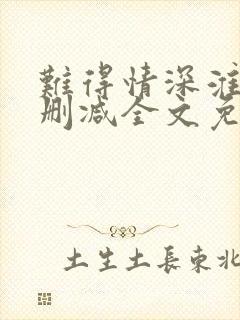 難得情深淮
删减全文免
土生土長東北